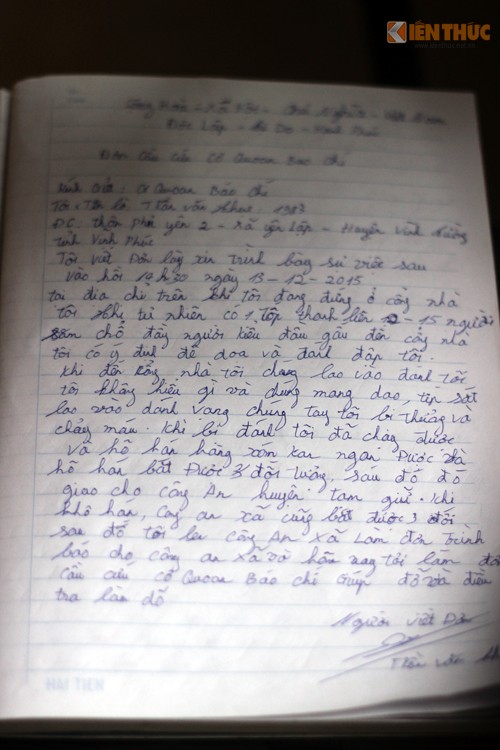 KIẾN THỨC
www.kienthuc.net.vn
Cộng Hòa - Xã Hội - Chủ Nghĩa - Việt Nam
Độc Lập - Tự Do - Hạnh Phúc
Đơn Cầu cứu Cơ Quoan Báo Chí
Kính Gửi: Cơ Quoan Báo Chí
Tôi Tên là Trần văn 1983
ĐC: thôn Phủ yên 2 - Xã yên Lập - Huyện Vĩnh Tường
tỉnh Vĩnh Phúc
Tôi viết Đơn lày xin trình bày sự việc sau
vào hồi 14h30 ngày 13-12-2015
tại địa chỉ trên khi tôi đang đứng ở cổng nhà
tôi thì tự nhiên có 1 Tốp thanh liên 12-15 người
chở đầy người kiêu đâu gấu đến cổng nhà
tôi có ý định đe dọa và đánh đập tôi.
khi đến cổng nhà tôi chúng lao vào đánh tôi
tôi không hiểu gì và chúng mang dao, típ sắt
lao vào đánh chúng tay tôi bị thương và
chảy máu. khi bị đánh tôi đã chạy được
và hô hán hàng xóm can ngan Được và
hô hán bắt Được 3 đối tượng, sau đó đó
giao cho công An huyện tạm giữ. khi
hô hán, công an xã cũng bắt được 3 đối
sau đó tôi lên công An Xã Làm đơn trình
báo cho công an xã và hôm nay tôi làm đơn
cầu cứu cơ Quoan Báo chí giúp đỡ và điều
tra làm dõ
Người viết Đơn
Trần văn
HẢI TIẾN